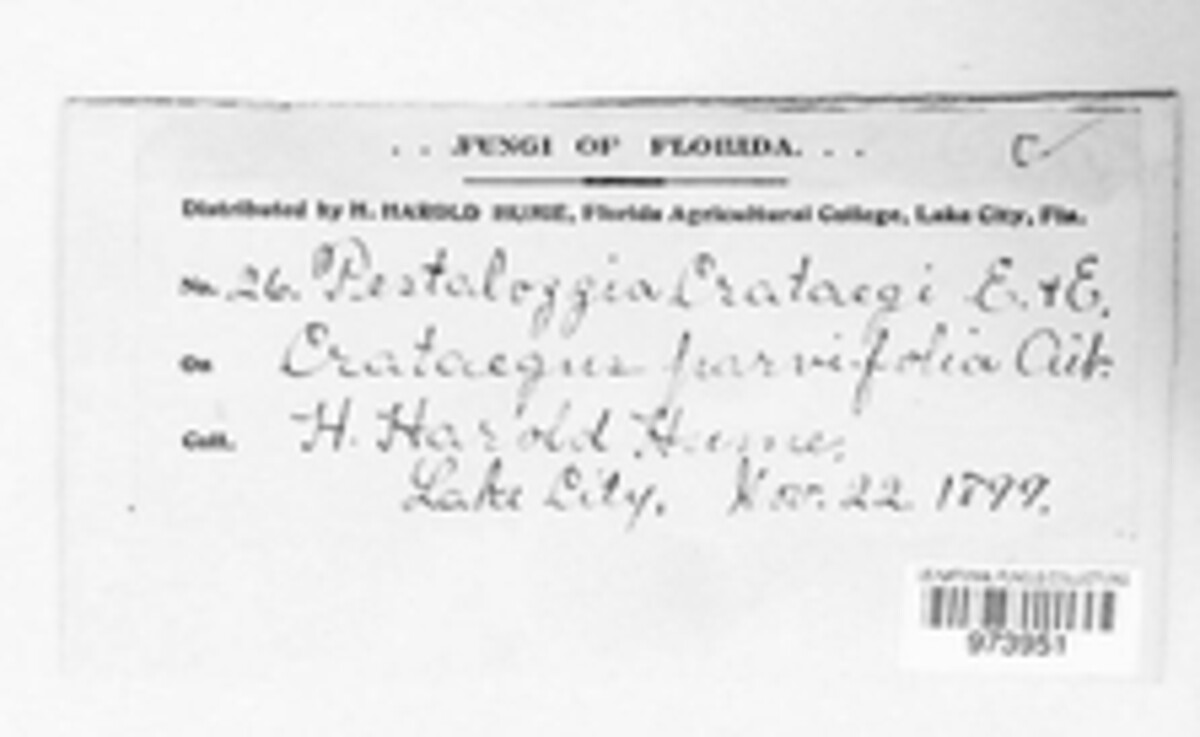 . . FUNGI OF FLORIDA. . .
C
Distributed by H. HAROLD HUME, Florida Agricultural College, Lake City, Fla.
No. 26. Pestaloggia Crataegi E. & E.
On Crataegus parvifolia Ait.
Coll. H. Harold Hume.
Lake City. Nov. 22 1899.
973951